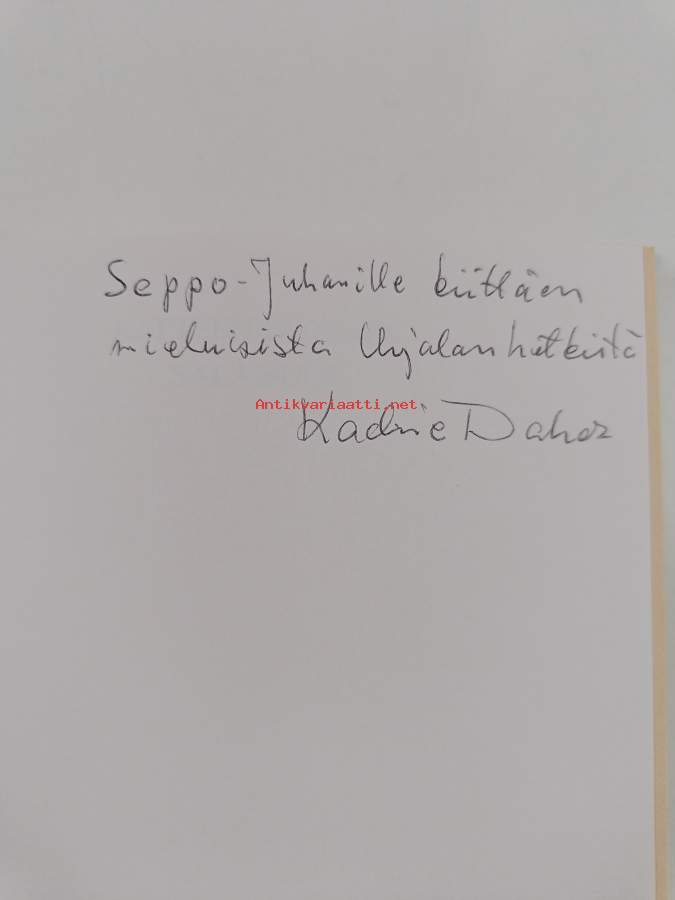 Seppo-Juhanille kiittäen
mieluisista Urjalan hetkistä
Antikvariaatti.net
Kadrie Daher